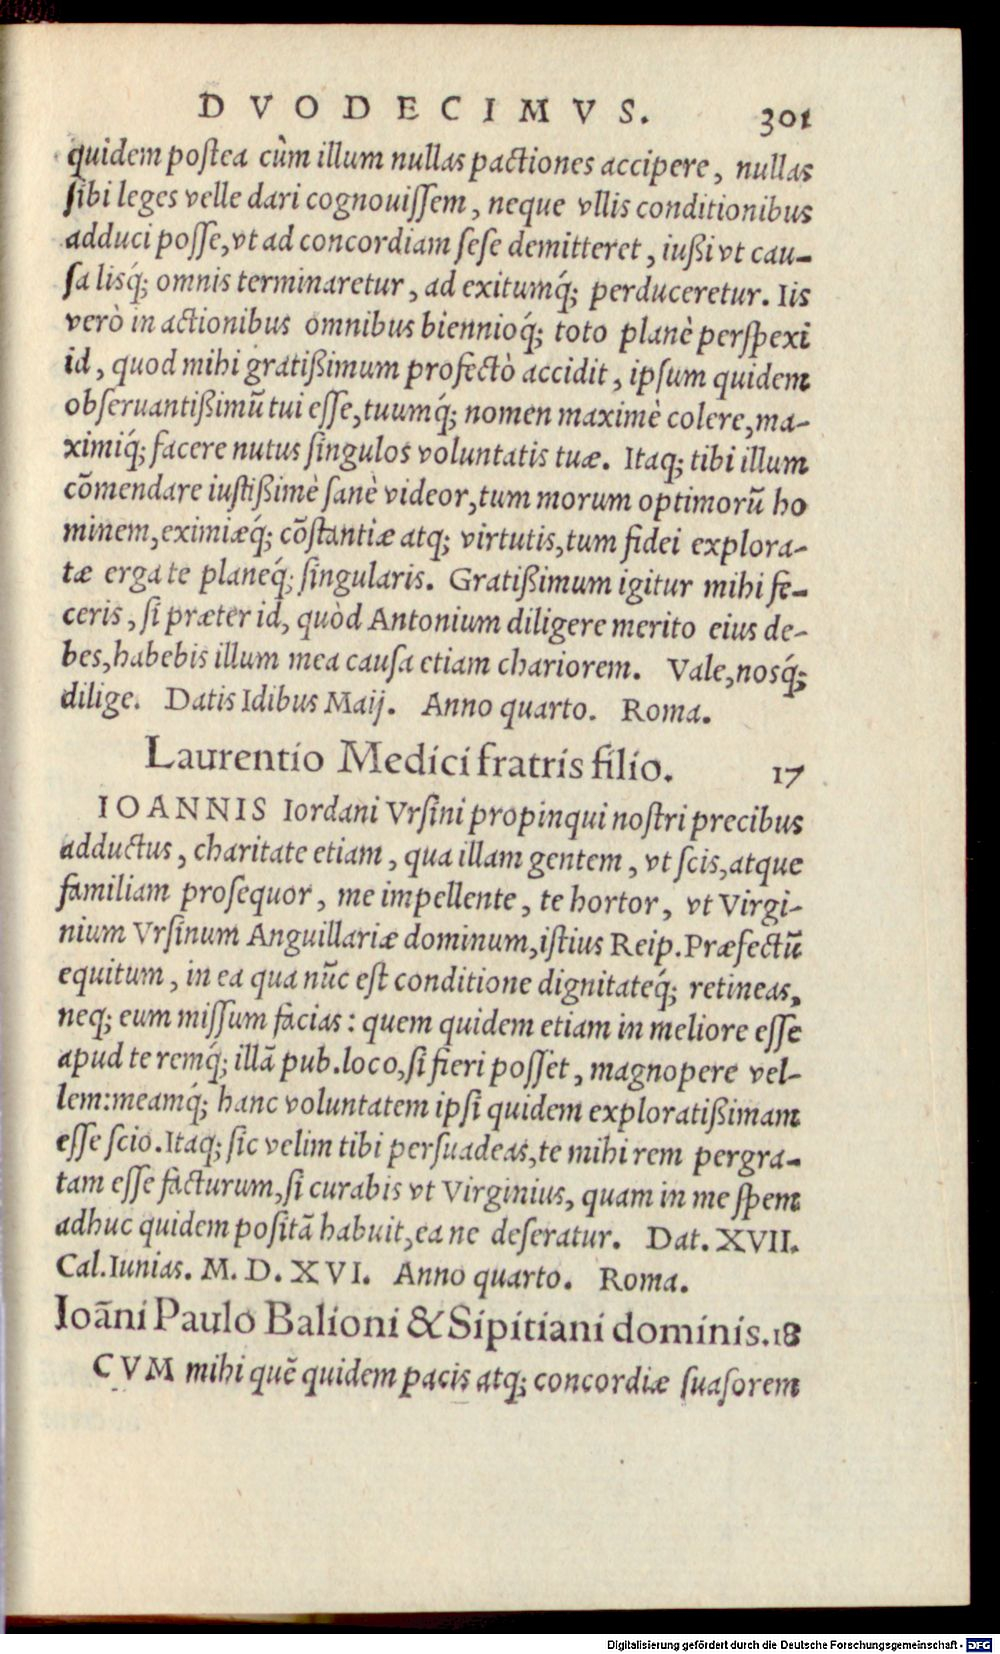 DVODECIMVS. 301
quidem postea cùm illum nullas pactiones accipere, nullas
sibi leges velle dari cognouissem, neque vllis conditionibus
adduci posse, vt ad concordiam sese demitteret, iußi vt cau-
sa lisq́; omnis terminaretur, ad exitumq́; perduceretur. Iis
verò in actionibus omnibus biennioq́; toto planè perspexi
id, quod mihi gratißimum profectò accidit, ipsum quidem
obseruantißimũ tui esse, tuumq́; nomen maximè colere, ma-
ximiq́; facere nutus singulos voluntatis tuæ. Itaq; tibi illum
cõmendare iustißimè sanè videor, tum morum optimorũ ho
minem, eximiæq́; cõstantiæ atq; virtutis, tum fidei explora-
tæ erga te planeq́; singularis. Gratißimum igitur mihi fe-
ceris, si præter id, quòd Antonium diligere merito eius de-
bes, habebis illum mea causa etiam chariorem. Vale, nosq́;
dilige. Datis Idibus Maij. Anno quarto. Roma.
Laurentio Medici fratris filio. 17
IOANNIS Iordani Vrsini propinqui nostri precibus
adductus, charitate etiam, qua illam gentem, vt scis, atque
familiam prosequor, me impellente, te hortor, vt Virgi-
nium Vrsinum Anguillariæ dominum, istius Reip. Præfectũ
equitum, in ea qua nũc est conditione dignitateq́; retineas,
neq; eum missum facias: quem quidem etiam in meliore esse
apud te remq́; illã pub. loco, si fieri posset, magnopere vel-
lem: meamq́; hanc voluntatem ipsi quidem exploratißimam
esse scio. Itaq; sic velim tibi persuadeas, te mihi rem pergra-
tam esse facturum, si curabis vt Virginius, quam in me spem
adhuc quidem positã habuit, ea ne deseratur. Dat. XVII.
Cal. Iunias. M. D. XVI. Anno quarto. Roma.
Ioãni Paulo Balioni & Sipitiani dominis. 18
CVM mihi quẽ quidem pacis atq; concordiæ suasorem
Digitalisierung gefördert durch die Deutsche Forschungsgemeinschaft - DFG